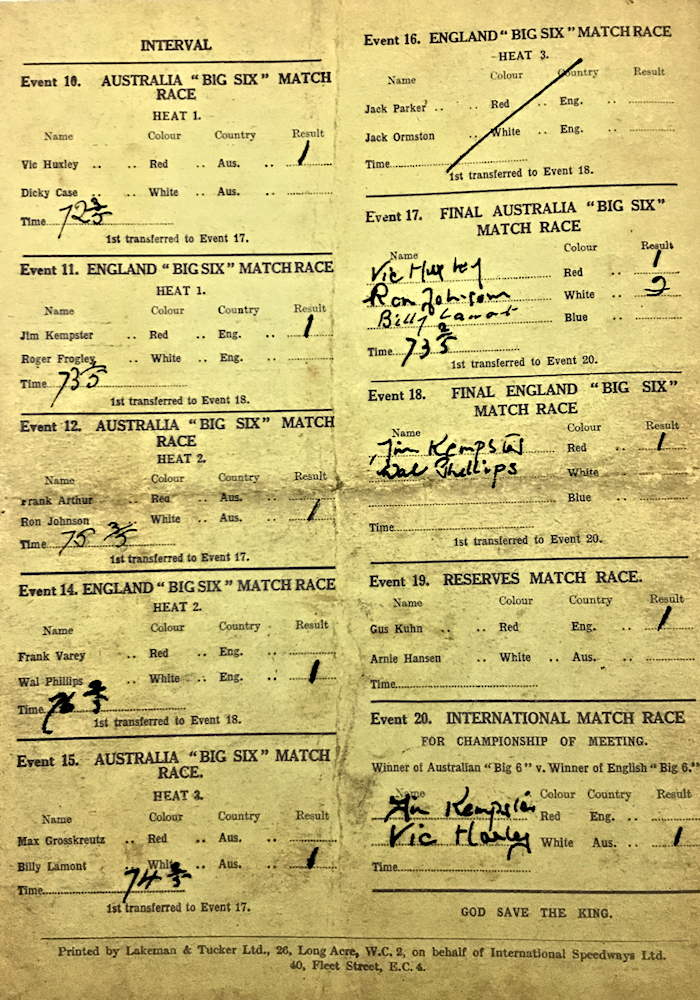 INTERVAL
Event 10. AUSTRALIA "BIG SIX" MATCH
RACE
HEAT 1.
Name Colour Country Result
Vic Huxley .. .. Red .. Aus. .. 1
Dicky Case .. White .. Aus. ..
Time 72
1st transferred to Event 17.
Event 11. ENGLAND "BIG SIX" MATCH RACE
HEAT 1.
Name Colour Country Result
Jim Kempster .. Red .. Eng. .. 1
Roger Frogley .. White .. Eng. ..
Time 73
1st transferred to Event 18.
Event 12. AUSTRALIA "BIG SIX" MATCH
RACE
HEAT 2.
Name Colour Country Result
Frank Arthur .. Red .. Aus. ..
Ron Johnson .. White .. Aus. .. 1
Time 75
1st transferred to Event 17.
Event 14. ENGLAND "BIG SIX" MATCH RACE
HEAT 2.
Name Colour Country Result
Frank Varey .. Red .. Eng. ..
Wal Phillips .. White .. Eng. .. 1
Time
1st transferred to Event 18.
Event 15. AUSTRALIA "BIG SIX" MATCH
RACE.
HEAT 3.
Name Colour Country Result
Max Grosskreutz .. Red .. Aus. ..
Billy Lamont .. White .. Aus. .. 1
Time 74
1st transferred to Event 17.
Event 16. ENGLAND "BIG SIX" MATCH RACE
HEAT 3.
Name Colour Country Result
Jack Parker .. .. Red .. Eng. ..
Jack Ormston .. White .. Eng. ..
Time
1st transferred to Event 18.
Event 17. FINAL AUSTRALIA "BIG SIX"
MATCH RACE
Name Colour Result
Vic Huxley Red .. 1
Ron Johnson White .. 2
Billy Lamont Blue ..
Time 73
1st transferred to Event 20.
Event 18. FINAL ENGLAND "BIG SIX"
MATCH RACE
Name Colour Result
Jim Kempster Red .. 1
Wal Phillips White ..
Blue ..
Time
1st transferred to Event 20.
Event 19. RESERVES MATCH RACE.
Name Colour Country Result
Gus Kuhn .. .. Red Eng. .. 1
Arnie Hansen .. White .. Aus. ..
Time
Event 20. INTERNATIONAL MATCH RACE
FOR CHAMPIONSHIP OF MEETING.
Winner of Australian "Big 6" v. Winner of English "Big 6."
Name Colour Country Result
Jim Kempster Red Eng. ..
Vic Huxley White Aus. .. 1
Time
GOD SAVE THE KING.
Printed by Lakeman & Tucker Ltd., 26, Long Acre, W.C. 2, on behalf of International Speedways Ltd.
40, Fleet Street, E.C. 4.